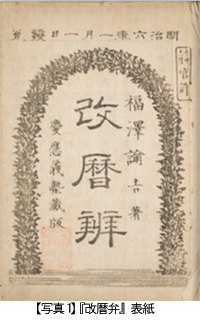 明治六年一月一日發兌
官許
福澤諭吉著
改暦辨
慶應義塾藏版
【写真1】『改暦弁』 表紙